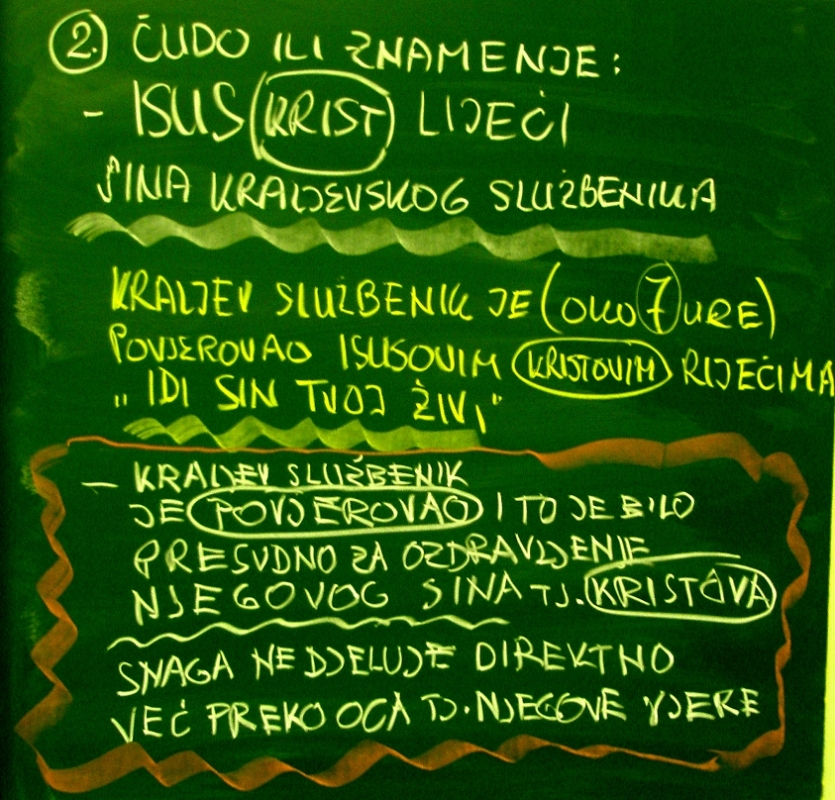 2. ČUDO ILI ZNAMENJE:
- ISUS KRIST LIJEČI
SINA KRALJEVSKOG SLUŽBENIKA
KRALJEV SLUŽBENIK JE (OKO 7 URE)
POVJEROVAO ISUSOVIM KRISTOVIM RIJEČIMA
"IDI SIN TVOJ ŽIVI"
- KRALJEV SLUŽBENIK
JE POVJEROVAO I TO JE BILO
PRESUDNO ZA OZDRAVLJENJE
NJEGOVOG SINA TJ. KRISTOVA
SNAGA NE DJELUJE DIREKTNO
VEĆ PREKO OCA TJ. NJEGOVE VJERE